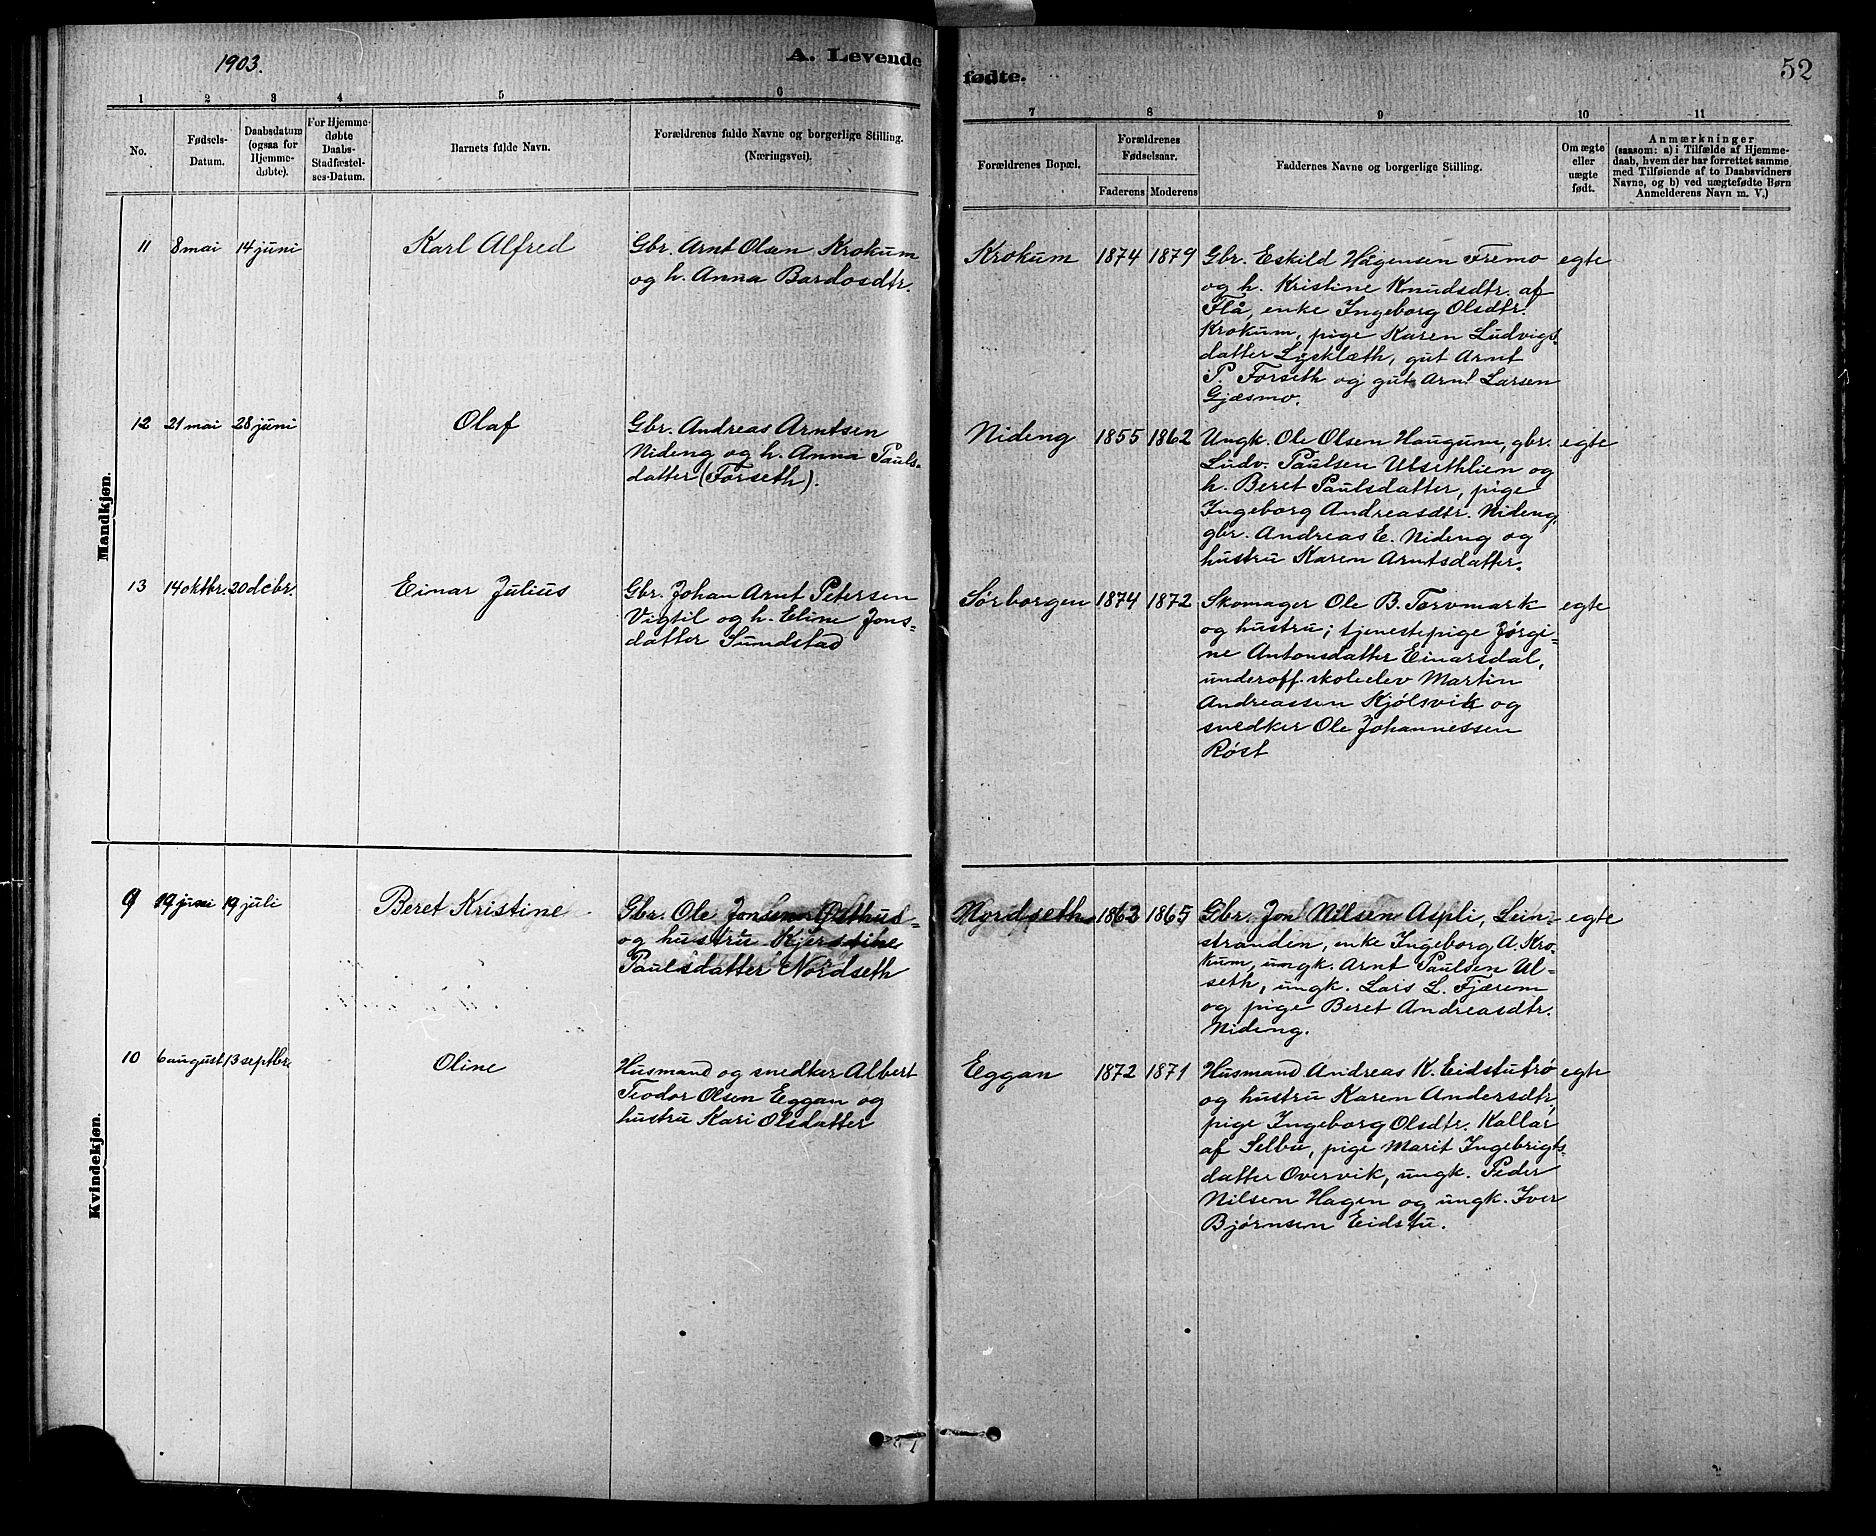 1903.
A. Levende
fødte.
52
1 2 3 4 5 6 7 8 9 10 11
No.
Fødsels-
Datum.
Daabsdatum
(ogsaa for
Hjemme-
døbte).
For Hjemme-
døbte
Daabs-
Stadfæstel-
ses-Datum.
Barnets fulde Navn.
Forældrenes fulde Navne og borgerlige Stilling.
(Næringsvei).
Forældrenes Bopæl.
Forældrenes
Fødselsaar.
Faderens
Moderens
Faddernes Navne og borgerlige Stilling.
Om ægte
eller
uægte
født.
Anmærkninger
(saasom: a) i Tilfælde af Hjemme-
daab, hvem der har forrettet samme,
med Tilføiende af to Daabsvidners
Navne, og b) ved uægtefødte Børn
Anmelderens Navn m. V.)
Mandkjøn.
11 8 mai 14 juni Karl Alfred
Gbr. Arnt Olsen Krokum
og h. Anna Bardosdtr.
Krokum 1874 1879
Gbr. Eskild Hågensen Fremo
og h. Kristine Knudsdtr. af
Flå, enke Ingeborg Olsdtr.
Krokum, pige Karen Ludvigs-
datter Lyseklæth, gut Arnt
P. Forseth og gut Arnt Larsen
Gjæsmo.
egte
12 21 mai 28 juni Olaf
Gbr. Andreas Arntsen
Nideng og h. Anna Pauls-
datter (Forseth).
Nideng 1855 1862
Ungk. Ole Olsen Haugum, gbr.
Ludv. Paulsen Ulsethlien og
h. Beret Paulsdatter, pige
Ingeborg Andreasdtr. Nideng,
gbr. Andreas E. Nideng og
hustru Karen Arntsdatter.
egte
13 14 oktbr. 20 dcbr. Einar Julius
Gbr. Johan Arnt Petersen
Vigtil og h. Eline Jons-
datter Sundstad
Sørborgen 1874 1872
Skomager Ole B. Torvmark
og hustru; tjenestepige Jørgi-
ne Antonsdatter Einarsdal,
underoff. skoleelev Martin
Andreassen Kjølsvik og
snedker Ole Johannessen
Røst
egte
Kvindekjøn.
9 19 juni 19 juli Beret Kristine
Gbr. Ole Jonsen
og hustru Kjerstine
Paulsdatter Nordseth
Nordseth 1863 1865
Gbr. Jon Nilsen Aspli, Lein-
stranden, enke Ingeborg A. Kro-
kum, ungk. Arnt Paulsen Ul-
seth, ungk. Lars L. Fjærem
og pige Beret Andreasdtr.
Nideng.
egte
10 6 august 13 septbr. Oline
Husmand og snedker Albert
Teodor Olsen Eggan og
hustru Kari Olsdatter
Eggan 1872 1871
Husmand Andreas K. Eidstutrø
og hustru Karen Andersdtr,
pige Ingeborg Olsdtr. Kallar
af Selbu, pige Marit Ingebrigts-
datter Overvik, ungk. Peder
Nilsen Hagen og ungk. Iver
Bjørnsen Eidstu.
egte